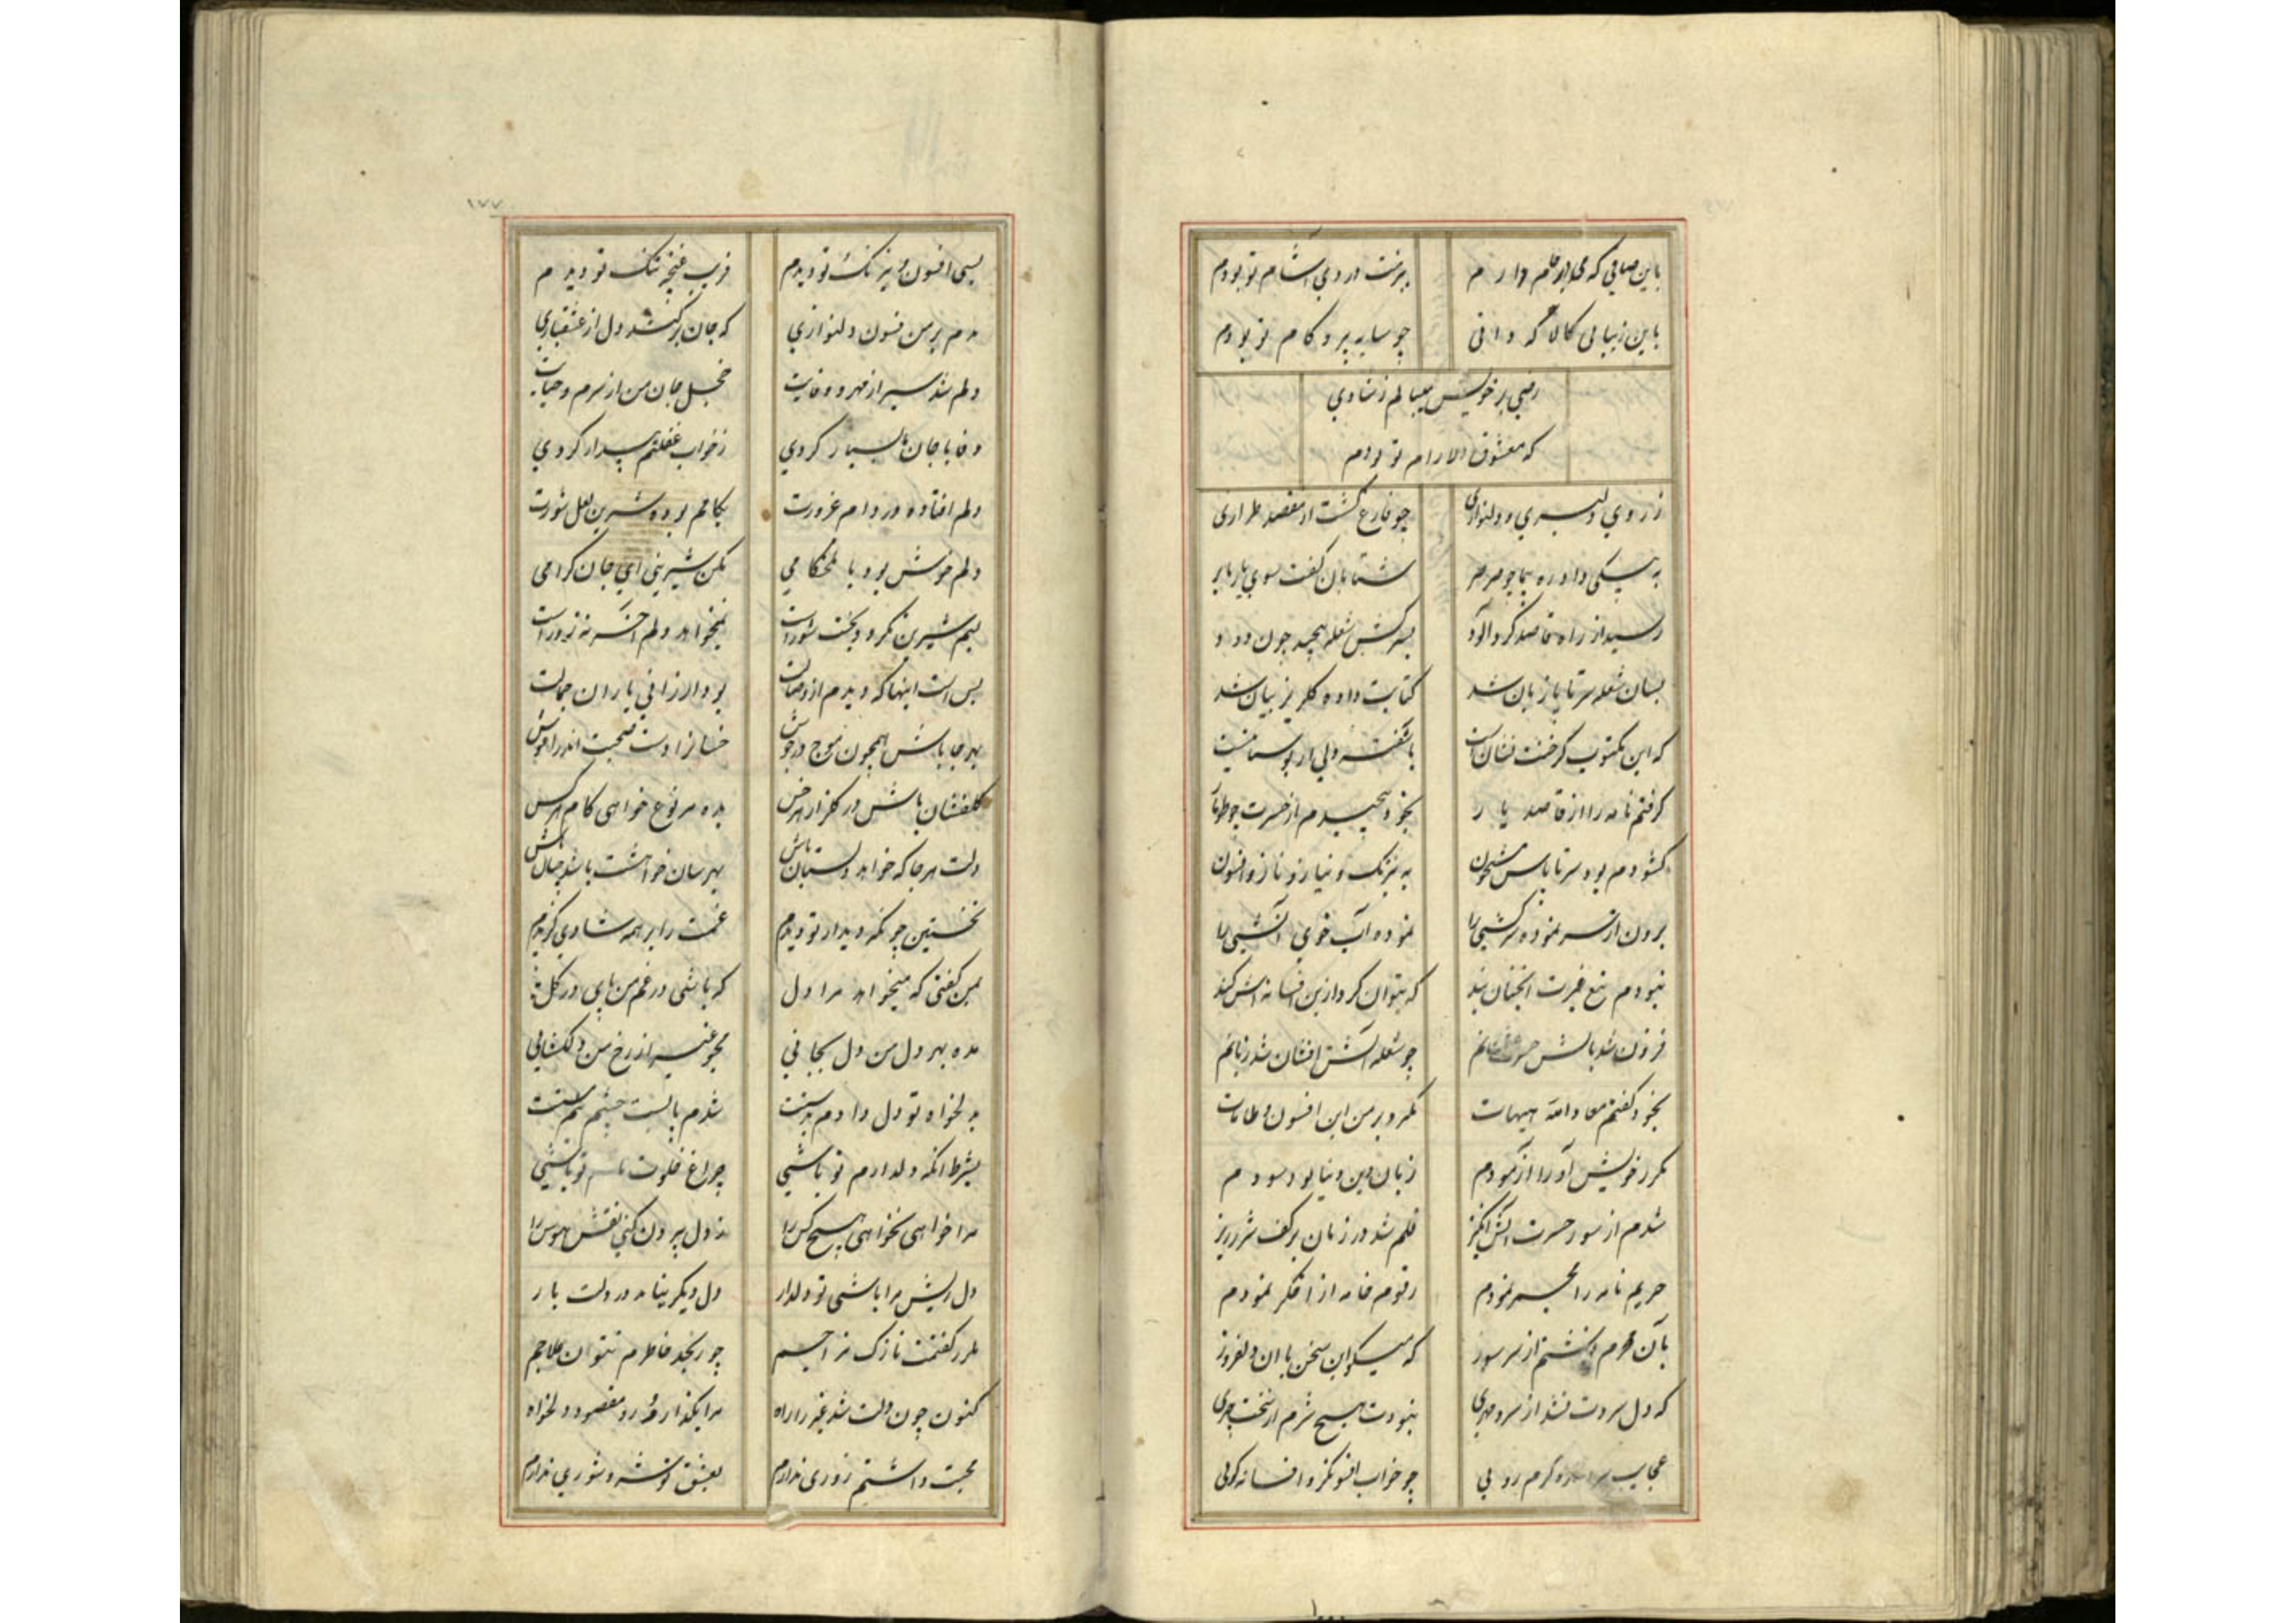 باین صافی که می در جام دارم بزمت دردی آشام تو بودم
باین زیبایی کالا که دانی چو سایه پیرو کام تو بودم
رضی بر خویش میبالم ز شادی
که معشوق دلارام تو بودم
ز روی دلبری و دلنوازی چو فارغ گشت از مقصد طرازی
به پیکی داد ره پیما چو صرصر شتابان گفت سوی یار بابر
رسید از راه قاصد گرد آلود بسرکش شعله پیچید چون دود
بسان شعله سر تا پا زبان شد کتابت داده گلریز بیان شد
که این مکتوب کز خفت نشان است
گرفتم نامه را از قاصد یار بخود پیچیدم از حسرت چو طومار
گشودم بود سر تا پاش مشحون به نیرنگ و نیاز و ناز و افسون
برون از سر نموده سرکشی را نموده آب خوی آتشی را
نبودم تیغ غیرت آنچنان کند که بتوان کرد ازین افسانه اش کند
فزون شد بالش چو شعله آتش افشان شد زبانم
بخود گفتم معاذ الله هیهات مگر و بر من این افسون و طامات
مکرر خویش را آزمودم زیان دین و دنیا بود سودم
شدم از سوز حسرت آتش انگیز قلم شد در زمان بر کف شرر ریز
حریم نامه را مجمر نمودم رقوم خامه از اخگر نمودم
بآن محرم نوشتم از سر سوز که میگو این سخن با آن دلفروز
که دل سردت نشد از سرد مهری نبودت هیچ شرم از سخت چهری
عجایب گرم رویی چو خواب افسونگر و افسانه گویی
بسی افسون و نیرنگ تو دیدم فریب غنچه تنگ تو دیدم
مدم بر من فسون دلنوازی که جان برکنده شد دل از عشقبازی
دلم شد سیر از مهر و وفایت خجل جان من از شرم و حیایت
وفا با جان ما بسیار کردی ز خواب غفلتم بیدار کردی
دلم افتاده در دام غرورت بکامم بوده شیرین لعل شورت
دلم خوش بود با تلخکامی مکن شیرینی ای جان گرامی
لبم شیرین نکرد و بخت شور است نمیخواهد دلم آخر نه زور است
بس است اینها که دیدم از وصالت بود ارزانی یاران جمالت
بهر جا باش همچون موج در جوش خسانرا دست صحبت اندر آغوش
گلفشان باش در گلزار هر خس بده هر نوع خواهی کام هر کس
دلت هر جا که خواهد دلستان باش بهر سان خواهشت باشد چنان باش
نخستین چونکه دیدار تو دیدم غمت را بر همه شادی گزیدم
بمن گفتی که میخواهد مرا دل که باشی در غم من پای در گل
مده بهر دل من دل بجایی مجو غیر از رخ من دلگشایی
بدلخواه تو دل دادم بدستت شدم پابست چشم نیم مستت
بشرط آنکه دلدارم تو باشی چراغ خلوت تارم تو باشی
مرا خواهی نخواهی هیچ کس را ز دل بیرون کنی نقش هوس را
دل ریش مرا باشی تو دلدار دل دیگر نیابد در دلت بار
مکرر گفتمت نازک مزاجم چو رنجد خاطرم نتوان علاجم
کنون چون دلت شد غیر را راه مرا بگذار و رو مقصود دلخواه
محبت داشتم زوری ندارم بعشق تو سر و شوری ندارم